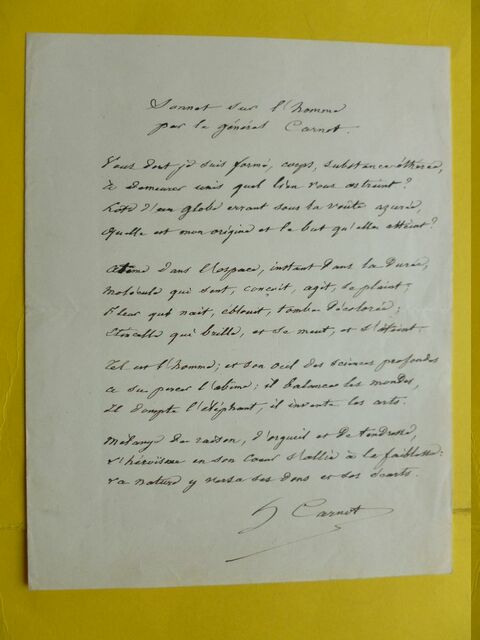 Sonnet sur l'homme
par le général Carnot.
Vous dont je suis formé, corps, substance éthérée,
à demeurer unis quel lien vous astreint?
hôte d'un globe errant sous la voûte azurée,
quelle est mon origine et le but qu'elle atteint?
atôme dans l'espace, instant dans la durée,
molécule qui sent, conçoit, agit, se plaint;
fleur qui nait, éblouit, tombe décolorée;
étincelle qui brille, et se meut, et s'éteint.
tel est l'homme; et son oeil des sciences profondes
a su percer l'abîme; il balance les mondes,
il dompte l'éléphant, il invente les arts.
mélange de raison, d'orgueil et de tendresse,
l'héroïsme en son coeur s'allie à la faiblesse:
la nature y versa ses dons et ses écarts.
Carnot